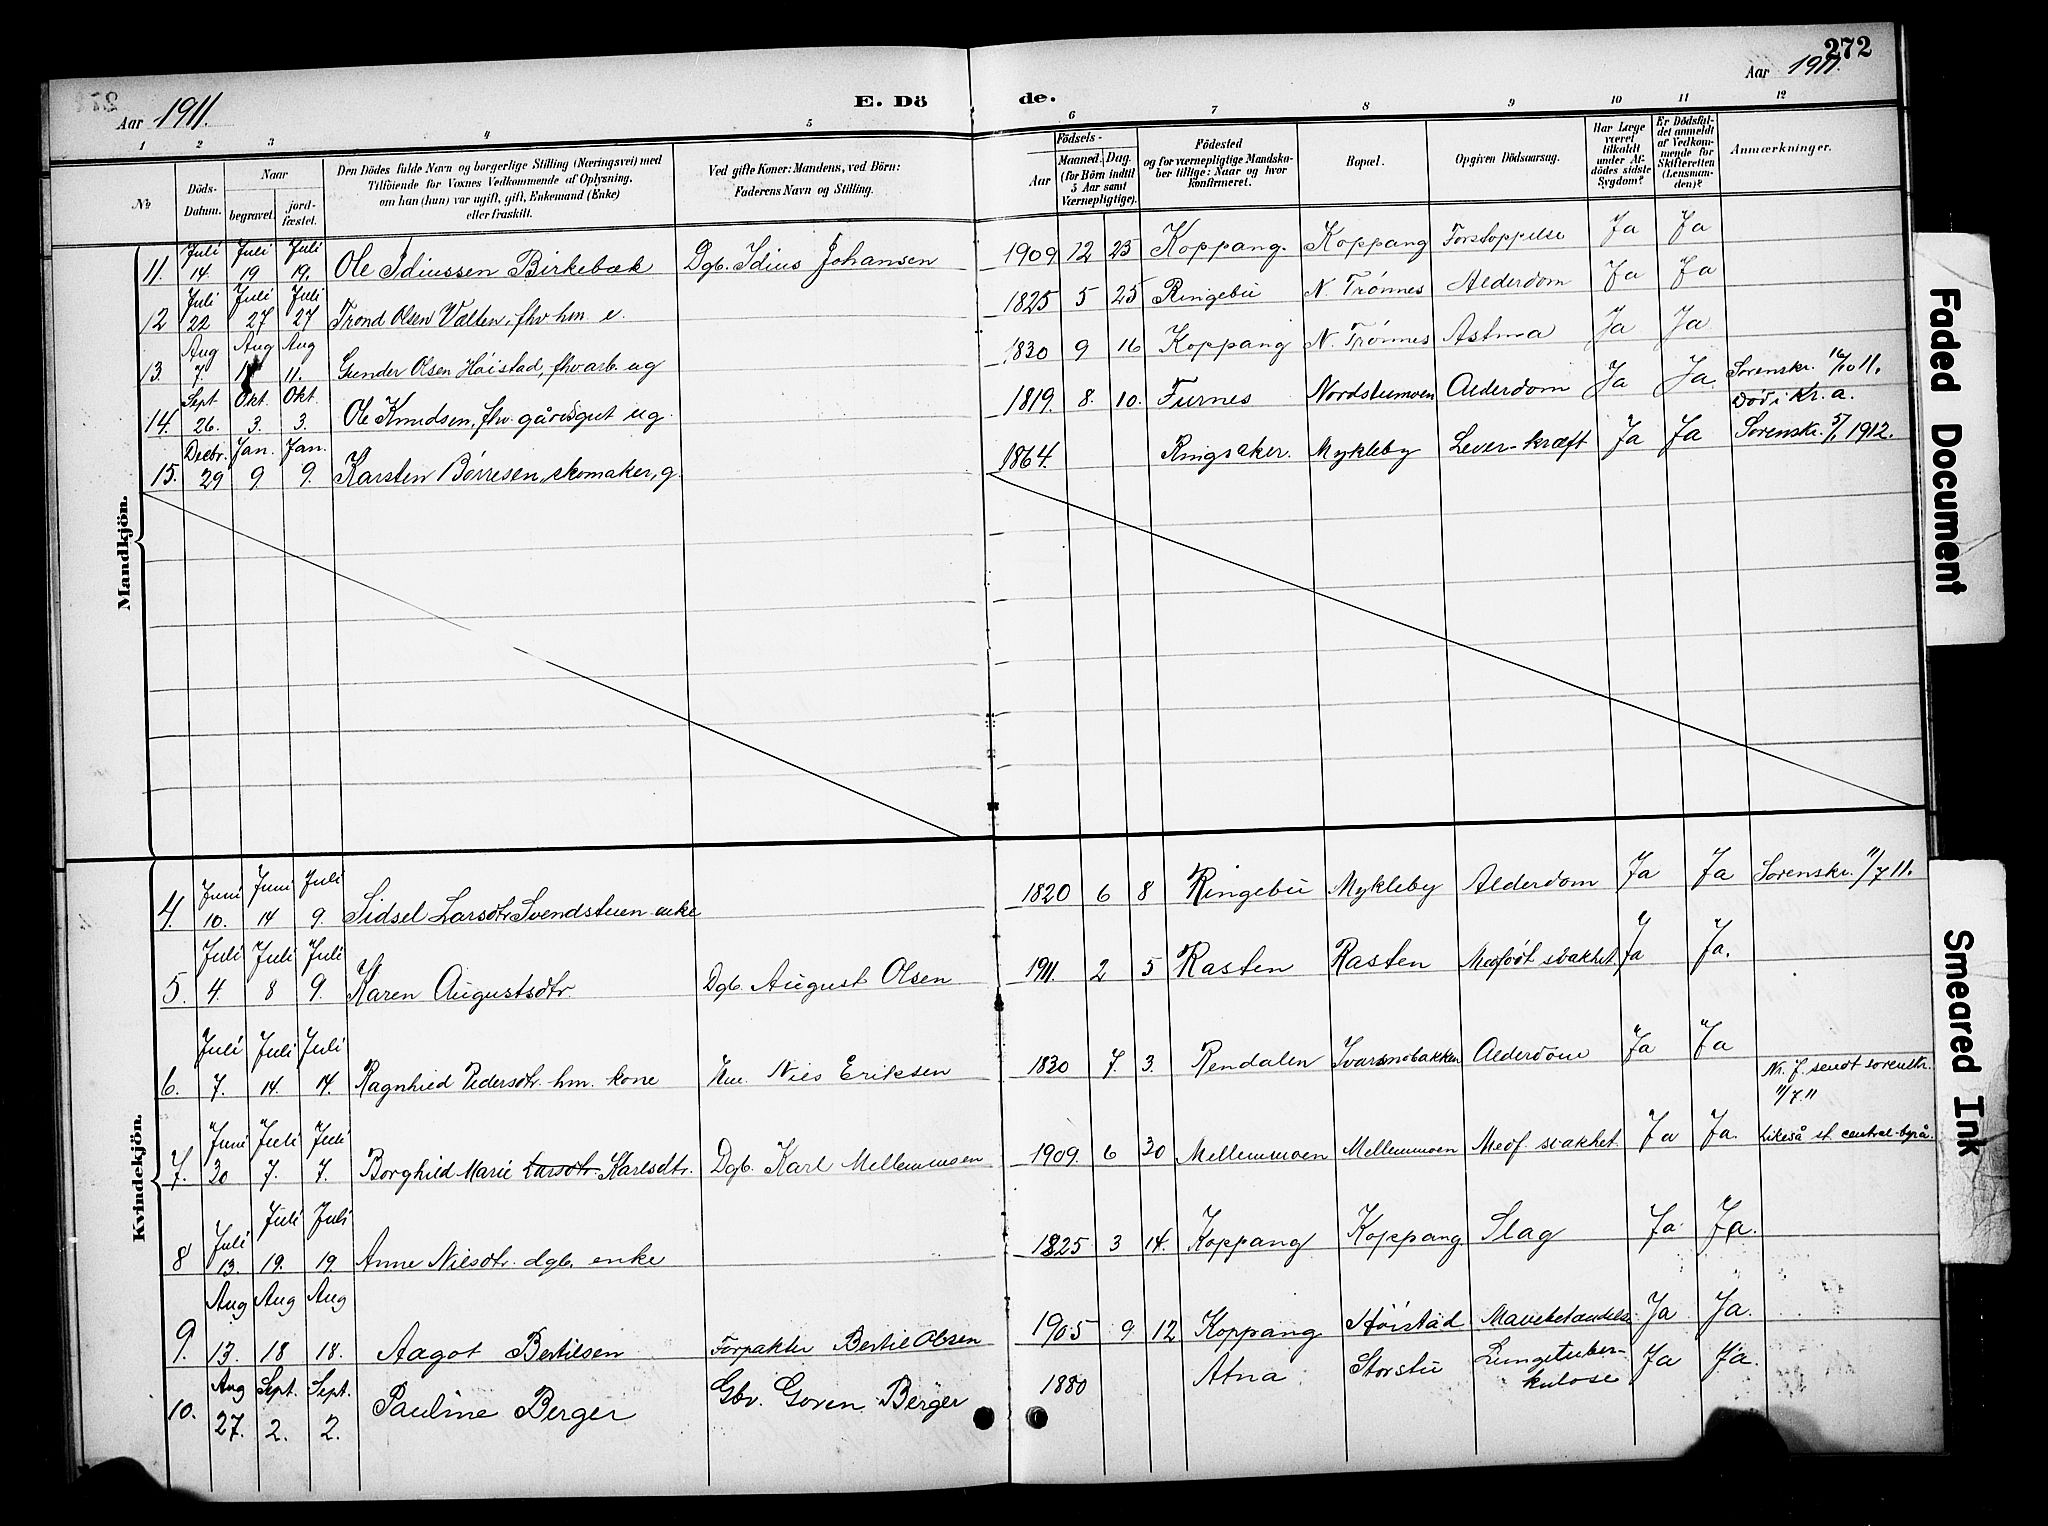 272
Aar 1911.
E. Dö
de.
Aar 1911
1 2 3 4 5 6 7 8 9 10 11 12
No
Döds-Datum.
Naar
begravet.
jord-fæstet.
Den Dödes fulde Navn og borgerlige Stilling (Næringsvei) med
Tilföiende for Voxnes Vedkommende af Oplysning,
om han (hun) var ugift, gift, Enkemand (Enke)
eller fraskilt.
Ved gifte Koner: Mandens, ved Börn:
Faderens Navn og Stilling.
Födsels-
Aar
Maaned. Dag.
(for Börn indtil
5 Aar samt
Værnepligtige).
Födested
og for værnepligtige Mandska-
ber tillige: Naar og hvor
konfirmeret.
Bopæl.
Opgiven Dödsaarsag.
Har Læge
været
tilkaldt
under Af-
dödes sidste
Sygdom?
Er Dödsfal-
det anmeldt
af Vedkom-
mende for
Skifteretten
(Lensman-
den)?
Anmærkninger.
Mandkjön.
11. Juli 14. Juli 19 Juli 19. Ole Idiussen Birkebæk Dgb. Idius Johansen 1909 12 23 Koppang. Koppang Forstoppelse Ja Ja
12 Juli 22 Juli 27 Juli 27 Trond Olsen Vælten, fhv hm. e. 1825 5 25 Ringebu N. Trønnes Alderdom Ja Ja
13. Aug 7. Aug Aug 11. Gunder Olsen Høistad, fhv arb. ug 1830 9 16 Koppang N. Trønnes Astma Ja Ja
14. Sept 26. Okt. 3. Okt. 3. Ole Knudsen, fhv gårdsgut ug. 1819. 8. 10. Furnes Nordstumoen Alderdom Ja Ja. Sorenskr. 16/10 11.
Død i Kr. a.
15. Decbr. 29 Jan. 9 Jan. 9. Karsten Børresen, skomaker, g. 1864. Ringsaker. Mykleby Lever-kræft Ja Ja Sorenskr. 5/1 1912.
Kvindekjön.
4. Juni 10. Juni 14 Juli 9. Sidsel Larsdtr Svendstuen enke 1820 6 8 Ringebu Mykleby Alderdom Ja Ja Sorenskr. 11/7 11.
5. Juli 4. Juli 8 Juli 9. Karen Augustsdtr. Dgb. August Olsen 1911. 2 5 Rasten Rasten Medfødt svakhet Ja Ja.
6. Juli 7. Juli 14. Juli 14. Ragnhild Pedersdtr. hm. kone Hm. Nils Eriksen 1830 7. 3. Rendalen Ivarsmobakken Alderdom Ja Ja
Nr. 7. sendt sorenskr.
11/7 11
7. Juni 30 Juli 7. Juli 7. Borghild Marie Larsdtr. Karlsdtr. Dgb. Karl Mellemmoen 1909. 6 30 Mellemmoen Mellemmoen Medf. svakhet. Ja Ja. Likeså st. central-byrå.
8 Juli 13. Juli 19. Juli 19. Anne Nilsdtr. dgb. enke 1825 3 14. Koppang Koppang Slag Ja Ja.
9. Aug 13. Aug 18 Aug 18. Aagot Bertilsen Forpakter Bertil Olsen 1905 9 12 Koppang Høistad Mavebetændelse Ja Ja.
10. Aug 27. Sept. 2. Sept. 2. Pauline Berger Gbr. Goren Berger 1880 Atna Storstu Lungetuber-
kulose Ja Ja.
Faded Document
Smeared Ink